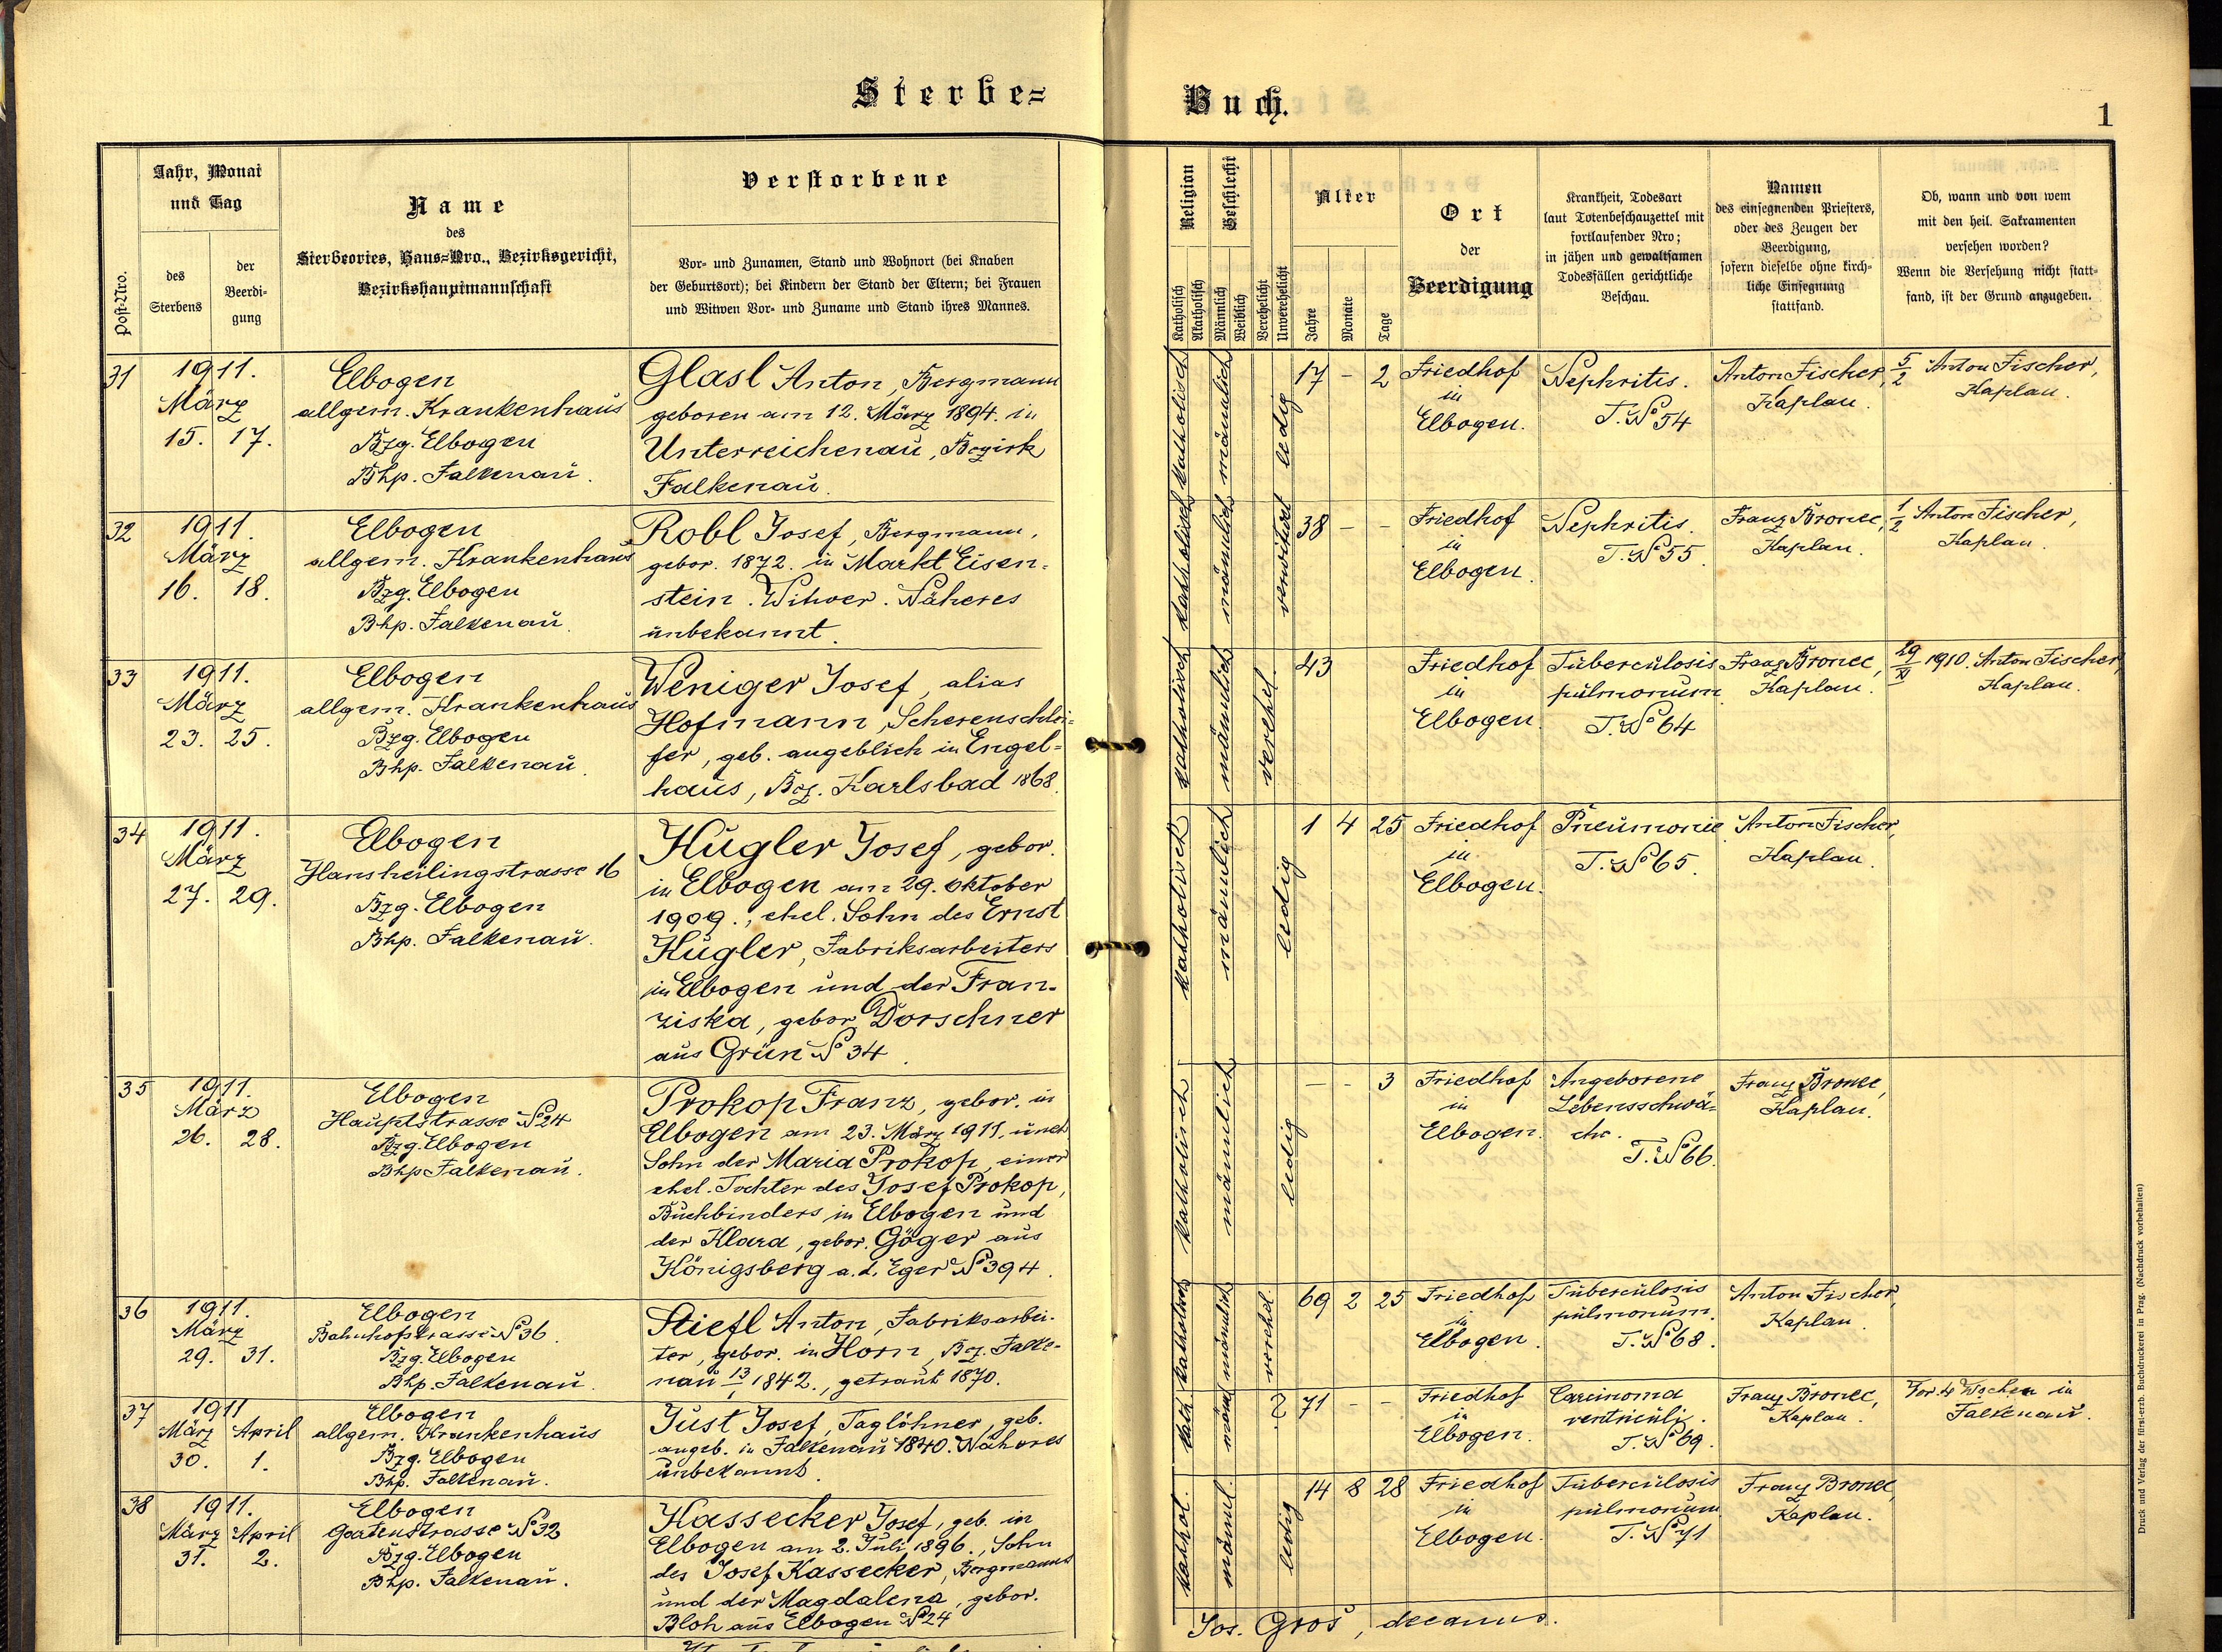 Sterbe=
Buch.
1
Post-Nro.
Jahr, Monat
und Tag
des
Sterbens
der
Beerdi-
gung
Name
des
Sterbeortes, Haus=Nro., Bezirksgericht,
Bezirkshauptmannschaft
Verstorbene
Vor- und Zunamen, Stand und Wohnort (bei Knaben
der Geburtsort); bei Kindern der Stand der Eltern; bei Frauen
und Witwen Vor- und Zuname und Stand ihres Mannes.
Religion
Katholisch
Akatholisch
Geschlecht
Männlich
Weiblich
Verehelicht
Unverehelicht
Alter
Jahre
Monate
Tage
Ort
der
Beerdigung
Krankheit, Todesart
laut Totenbeschauzettel mit
fortlaufender Nro;
in jähen und gewaltsamen
Todesfällen gerichtliche
Beschau.
Namen
des einsegnenden Priesters,
oder des Zeugen der
Beerdigung,
sofern dieselbe ohne kirch-
liche Einsegnung
stattfand.
Ob, wann und von wem
mit den heil. Sakramenten
versehen worden?
Wenn die Versehung nicht statt-
fand, ist der Grund anzugeben.
31
1911.
März
15. 17.
Elbogen
allgem. Krankenhaus
Bzg. Elbogen
Bhp. Falkenau.
Glasl Anton, Bergmann
geboren am 12. März 1894. in
Unterreichenau, Bezirk
Falkenau.
katholisch
männlich
ledig
17 - 2
Friedhof
in
Elbogen.
Nephritis.
T. No 54
Anton Fischer,
Kaplan.
5/2 Anton Fischer,
Kaplan.
32
1911.
März
16. 18.
Elbogen
allgem. Krankenhaus
Bzg. Elbogen
Bhp. Falkenau.
Robl Josef, Bergmann,
gebor. 1872. in Markt Eisen-
stein. Witwer. Näheres
unbekannt.
katholisch
männlich
verwitwet
38 - -
Friedhof
in
Elbogen.
Nephritis.
T. No 55.
Franz Bronec,
Kaplan.
1/2 Anton Fischer,
Kaplan.
33
1911.
März
23. 25.
Elbogen
allgem. Krankenhaus
Bzg. Elbogen
Bhp. Falkenau.
Weniger Josef, alias
Hofmann, Scherenschlei-
fer, geb. angeblich in Engel-
haus, Bez. Karlsbad 1868.
katholisch
männlich
verehel.
43
Friedhof
in
Elbogen.
Tuberculosis
pulmonum.
T. No 64
Franz Bronec,
Kaplan.
29/XI 1910. Anton Fischer,
Kaplan.
34
1911.
März
27. 29.
Elbogen
Hansheilingstrasse 16
Bzg. Elbogen
Bhp. Falkenau.
Kugler Josef, gebor.
in Elbogen am 29. Oktober
1909., ehel. Sohn des Ernst
Kugler, Fabriksarbeiters
in Elbogen und der Fran-
ziska, gebor. Dorschner
aus Grün No 34.
katholisch
männlich
ledig
1 4 25
Friedhof
in
Elbogen.
Pneumonie
T. No 65.
Anton Fischer,
Kaplan.
35
1911.
März
26. 28.
Elbogen
Hauptstrasse No 24
Bzg. Elbogen
Bhp Falkenau.
Prokop Franz, gebor. in
Elbogen am 23. März 1911, unehl.
Sohn der Maria Prokop, einer
ehel. Tochter des Josef Prokop,
Buchbinders in Elbogen und
der Klara, gebor. Göger aus
Königsberg a. d. Eger No 394.
katholisch
männlich
ledig
- - 3
Friedhof
in
Elbogen.
Angeborene
Lebensschwä-
che.
T. No 66.
Franz Bronec,
Kaplan.
36
1911.
März
29. 31.
Elbogen
Bahnhofstrasse No 36.
Bzg. Elbogen
Bhp. Falkenau.
Stiefl Anton, Fabriksarbei-
ter, gebor. in Horn, Bez. Falke-
nau 13/1 1842., getraut 1870.
katholisch
männlich
verehel.
69 2 25
Friedhof
in
Elbogen.
Tuberculosis
pulmonum.
T. No 68.
Anton Fischer,
Kaplan.
37
1911
März April
30. 1.
Elbogen
allgem. Krankenhaus
Bzg. Elbogen
Bhp. Falkenau.
Just Josef, Taglöhner, geb.
angeb. in Falkenau 1840. Näheres
unbekannt.
kath.
männl
?
71 - -
Friedhof
in
Elbogen.
Carcinoma
ventriculi.
T. No 69.
Franz Bronec,
Kaplan.
Vor 4 Wochen in
Falkenau.
38
1911.
März April
31. 2.
Elbogen
No 32
Bzg. Elbogen
Bhp. Falkenau.
Kassecker Josef, geb. in
Elbogen am 2. Juli 1896., Sohn
des Josef Kassecker, Bergmanns
und der Magdalena, gebor.
Bloh aus Elbogen No 24
kathol.
männl.
ledig
14 8 28
Friedhof
in
Elbogen.
Tuberculosis
pulmonum
T. No 71
Franz Bronec,
Kaplan.
Jos. Groš, decanus.
Druck und Verlag der fürst-erzb. Buchdruckerei in Prag. (Nachdruck vorbehalten)